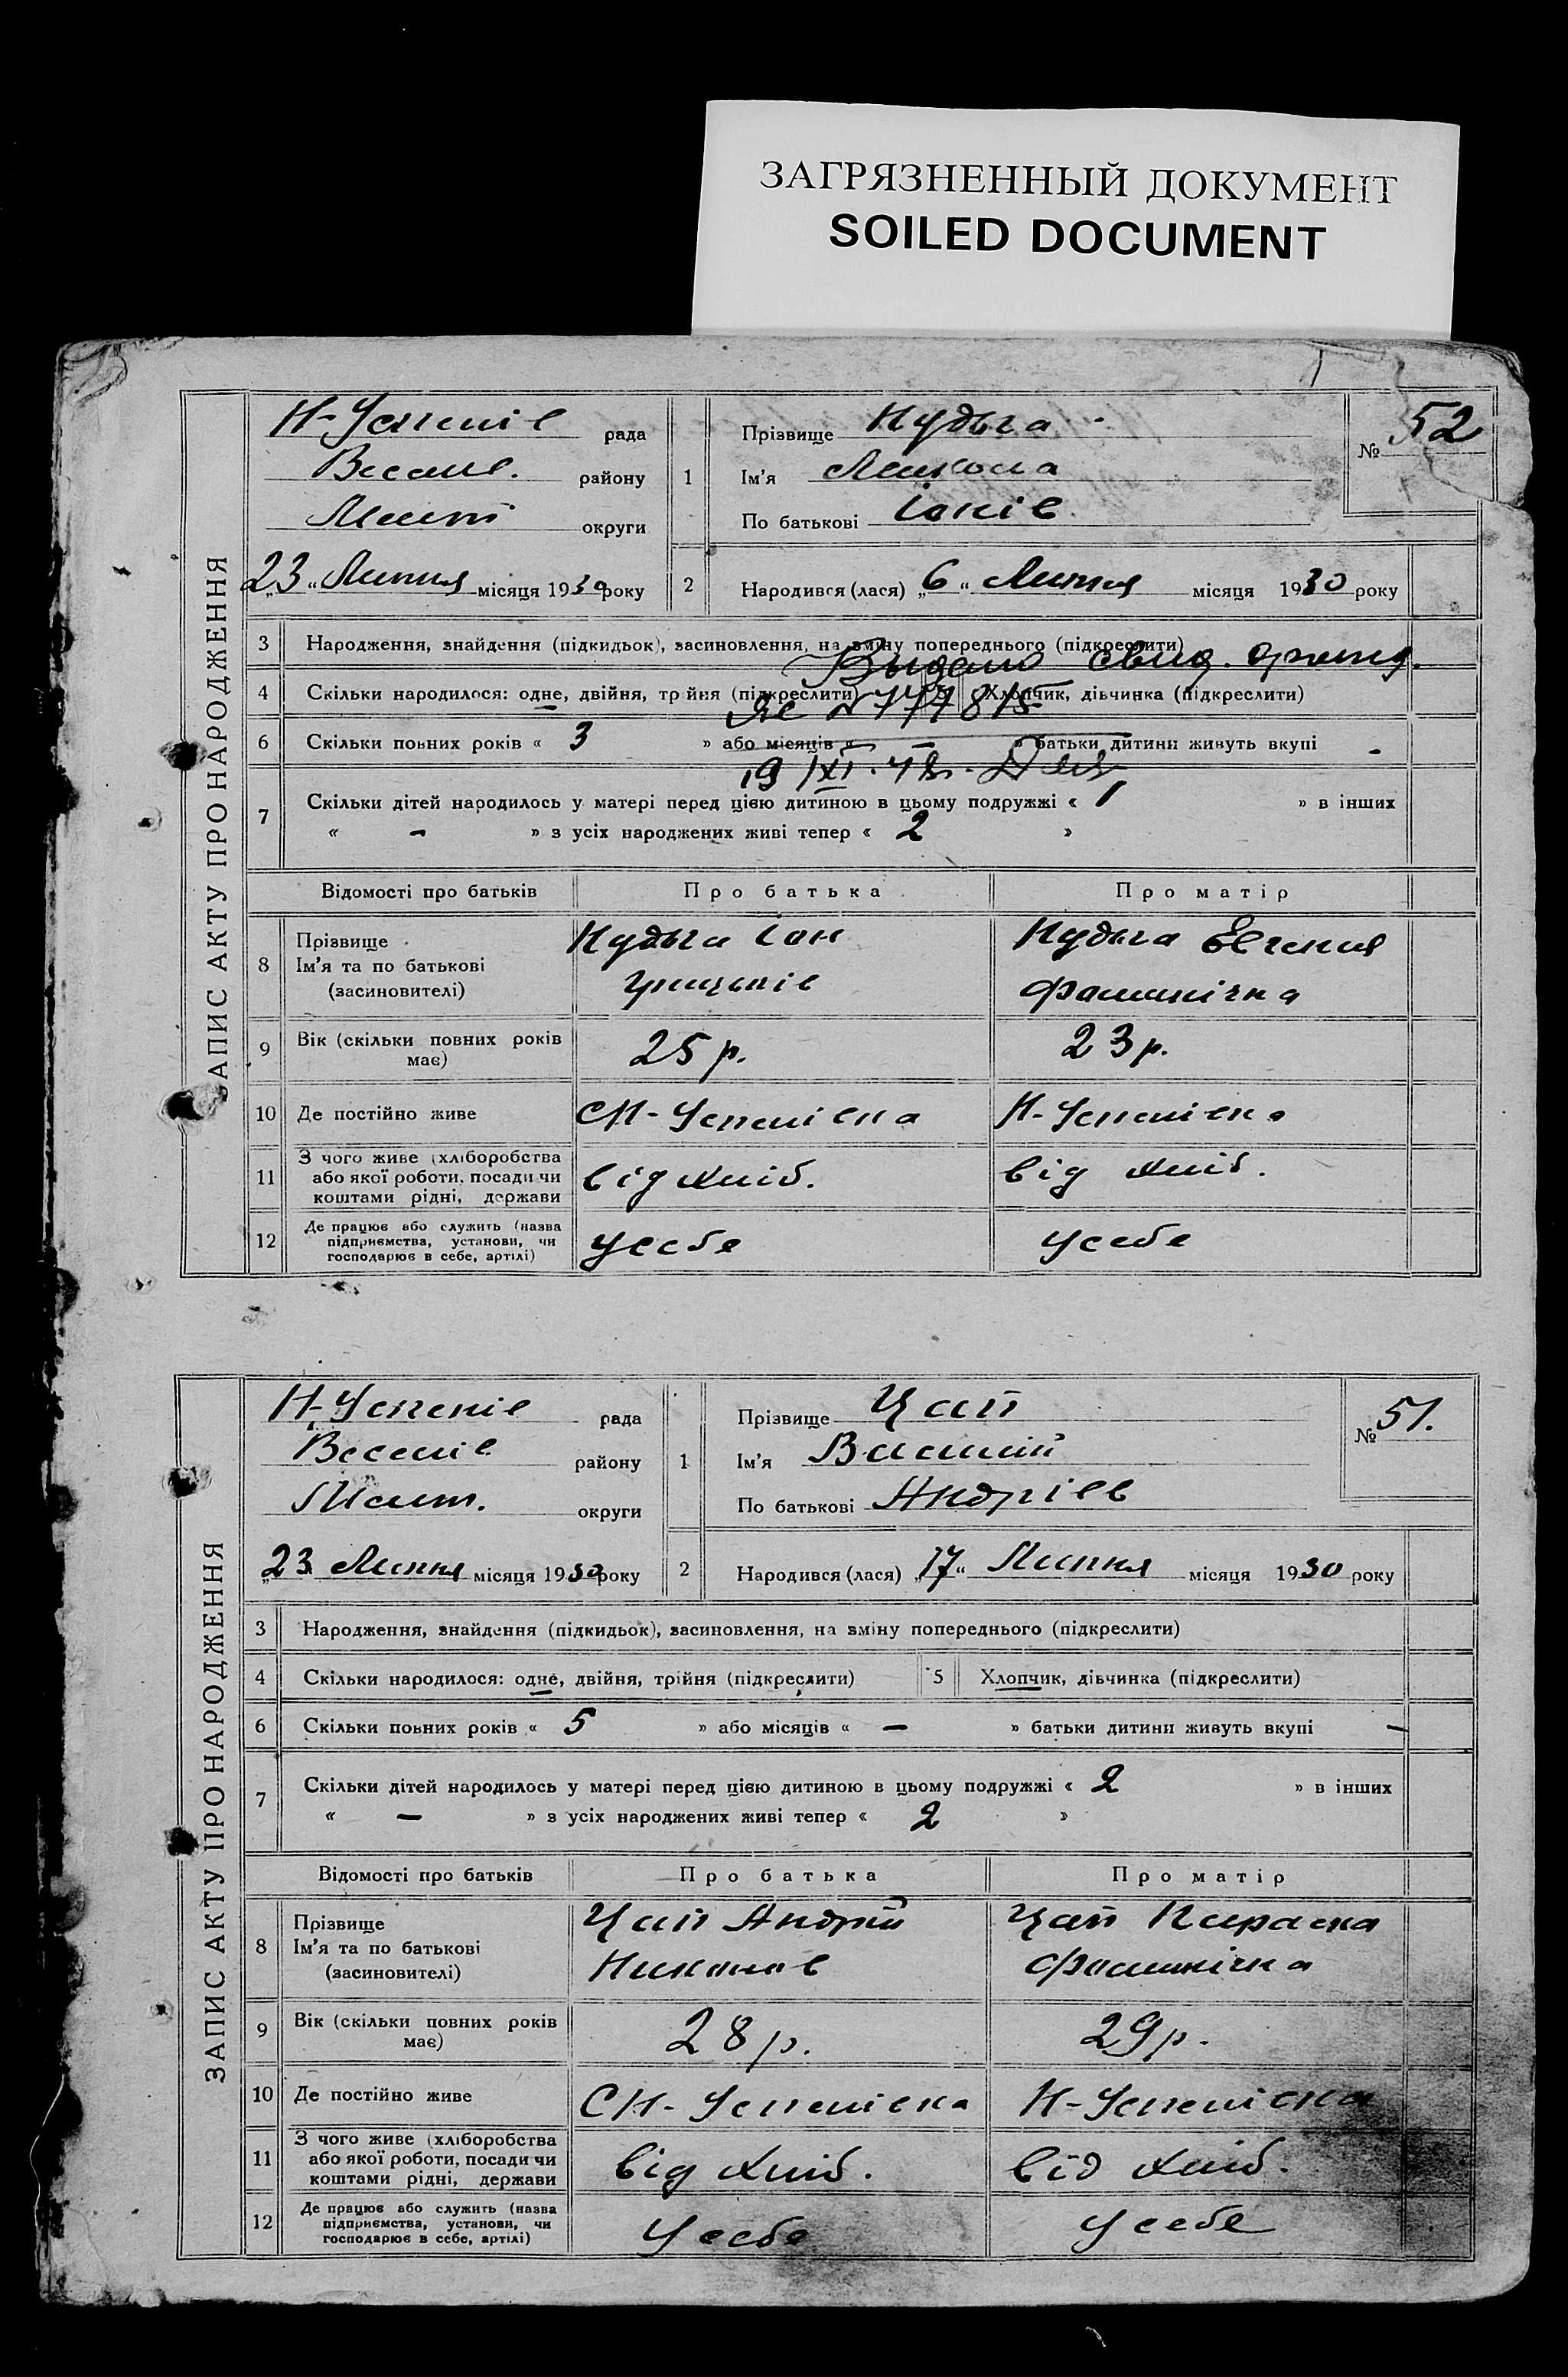 ЗАГРЯЗНЕННЫЙ ДОКУМЕНТ
SOILED DOCUMENT
ЗАПИС АКТУ ПРО НАРОДЖЕННЯ
Н-Успенів рада
Весели. району
Меліт округи
23 „ Липня місяця 1930 року
№ 52
1 Прізвище Кудьга
Ім'я Микола
По батькові Іонів
2 Народився (лася) „ 6 “ Липня місяця 1930 року
3 Народження, знайдення (підкидьок), засиновлення, на зміну попереднього (підкреслити)
Выдано свид.
4 Скільки народилося: одне, двійня, трійня (підкреслити) Хлопчик, дівчинка (підкреслити)
6 Скільки повних років « 3 » або місяців « — » батьки дитини живуть вкупі -
19/XI.
7 Скільки дітей народилось у матері перед цією дитиною в цьому подружжі « 1 » в інших
« - » з усіх народжених живі тепер « 2 »
Відомості про батьків Про батька Про матір
8 Прізвище Ім'я та по батькові (засновителі)
Кудьга Іон
Грицьків
Кудьга Евгения
Фомінічна
9 Вік (скільки повних років має) 25 р. 23 р.
10 Де постійно живе СН-Успенівка Н-Успенівка
11 З чого живе (хліборобства або якої роботи, посади чи коштами рідні, держави від хліб. від хліб.
12 Де працює або служить (назва підприємства, установи, чи господарює в себе, артілі) у себе у себе
ЗАПИС АКТУ ПРО НАРОДЖЕННЯ
Н-Успенів рада
Веселів району
Меліт. округи
„ 23 Липня місяця 1930 року
№ 51.
1 Прізвище Цап
Ім'я Василій
По батькові Андріїв
2 Народився (лася) „ 17 “ Липня місяця 1930 року
3 Народження, знайдення (підкидьок), засиновлення, на зміну попереднього (підкреслити)
4 Скільки народилося: одне, двійня, трійня (підкреслити) 5 Хлопчик, дівчинка (підкреслити)
6 Скільки повних років « 5 » або місяців « — » батьки дитини живуть вкупі —
7 Скільки дітей народилось у матері перед цією дитиною в цьому подружжі « 2 » в інших
« — » з усіх народжених живі тепер « 2 »
Відомості про батьків Про батька Про матір
8 Прізвище Ім'я та по батькові (засиновителі)
Цап Андрій
Никонов
Цап Параска
Фомінічна
9 Вік (скільки повних років має) 28 р. 29 р.
10 Де постійно живе СН-Успенівка Н-Успенівка
11 З чого живе (хліборобства або якої роботи, посади чи коштами рідні, держави від хліб. від хліб.
12 Де працює або служить (назва підприємства, установи, чи господарює в себе, артілі) у себе у себе